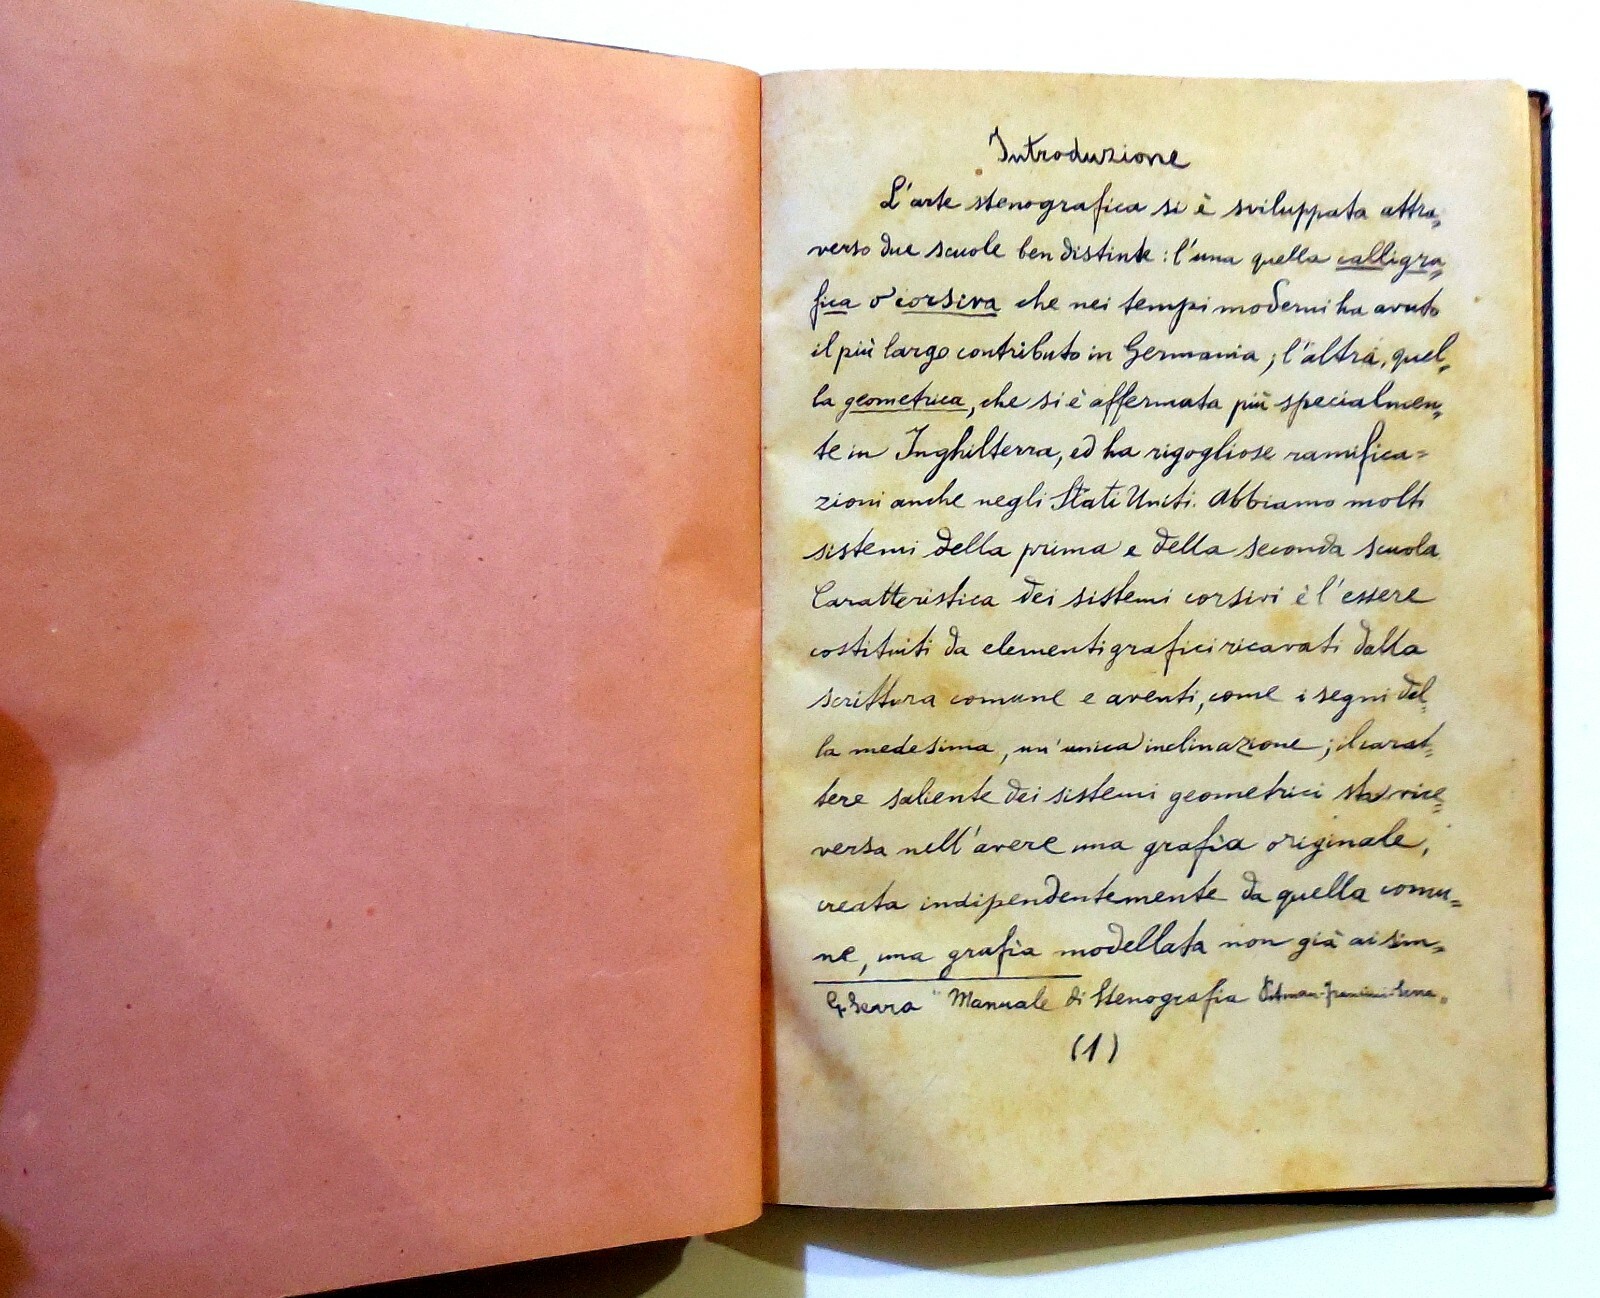 Introduzione
L'arte stenografica si è sviluppata attra=
verso due scuole ben distinte: l'una quella calligra=
fica o corsiva che nei tempi moderni ha avuto
il più largo contributo in Germania; l'altra, quel=
la geometrica, che si è affermata più specialmen=
te in Inghilterra, ed ha rigogliose ramifica=
zioni anche negli Stati Uniti. Abbiamo molti
sistemi della prima e della seconda scuola
Caratteristica dei sistemi corsivi è l'essere
costituiti da elementi grafici ricavati dalla
scrittura comune e aventi, come i segni del=
la medesima, un'unica inclinazione; il carat=
tere saliente dei sistemi geometrici sta vice=
versa nell'avere una grafia originale,
creata indipendentemente da quella comu=
ne, una grafia modellata non già ai sim=
G. Serra "Manuale di Stenografia Pitman-Francini-Serra"
(1)